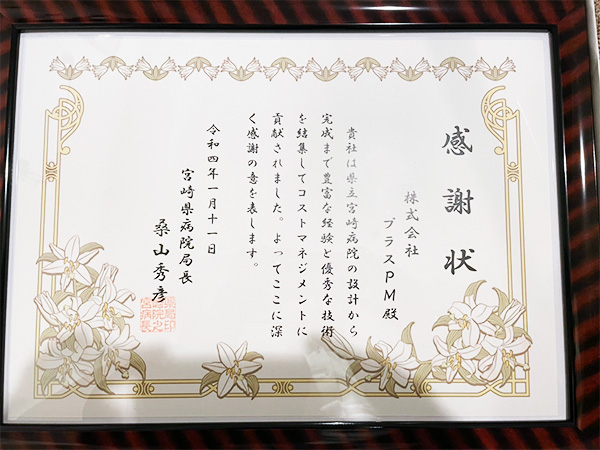 感謝状
株式会社
プラスPM殿
貴社は県立宮崎病院の設計から
完成まで豊富な経験と優秀な技術
を結集してコストマネジメントに
貢献されました。よってここに深
く感謝の意を表します。
令和四年一月十一日
宮崎県病院局長
桑山秀彦